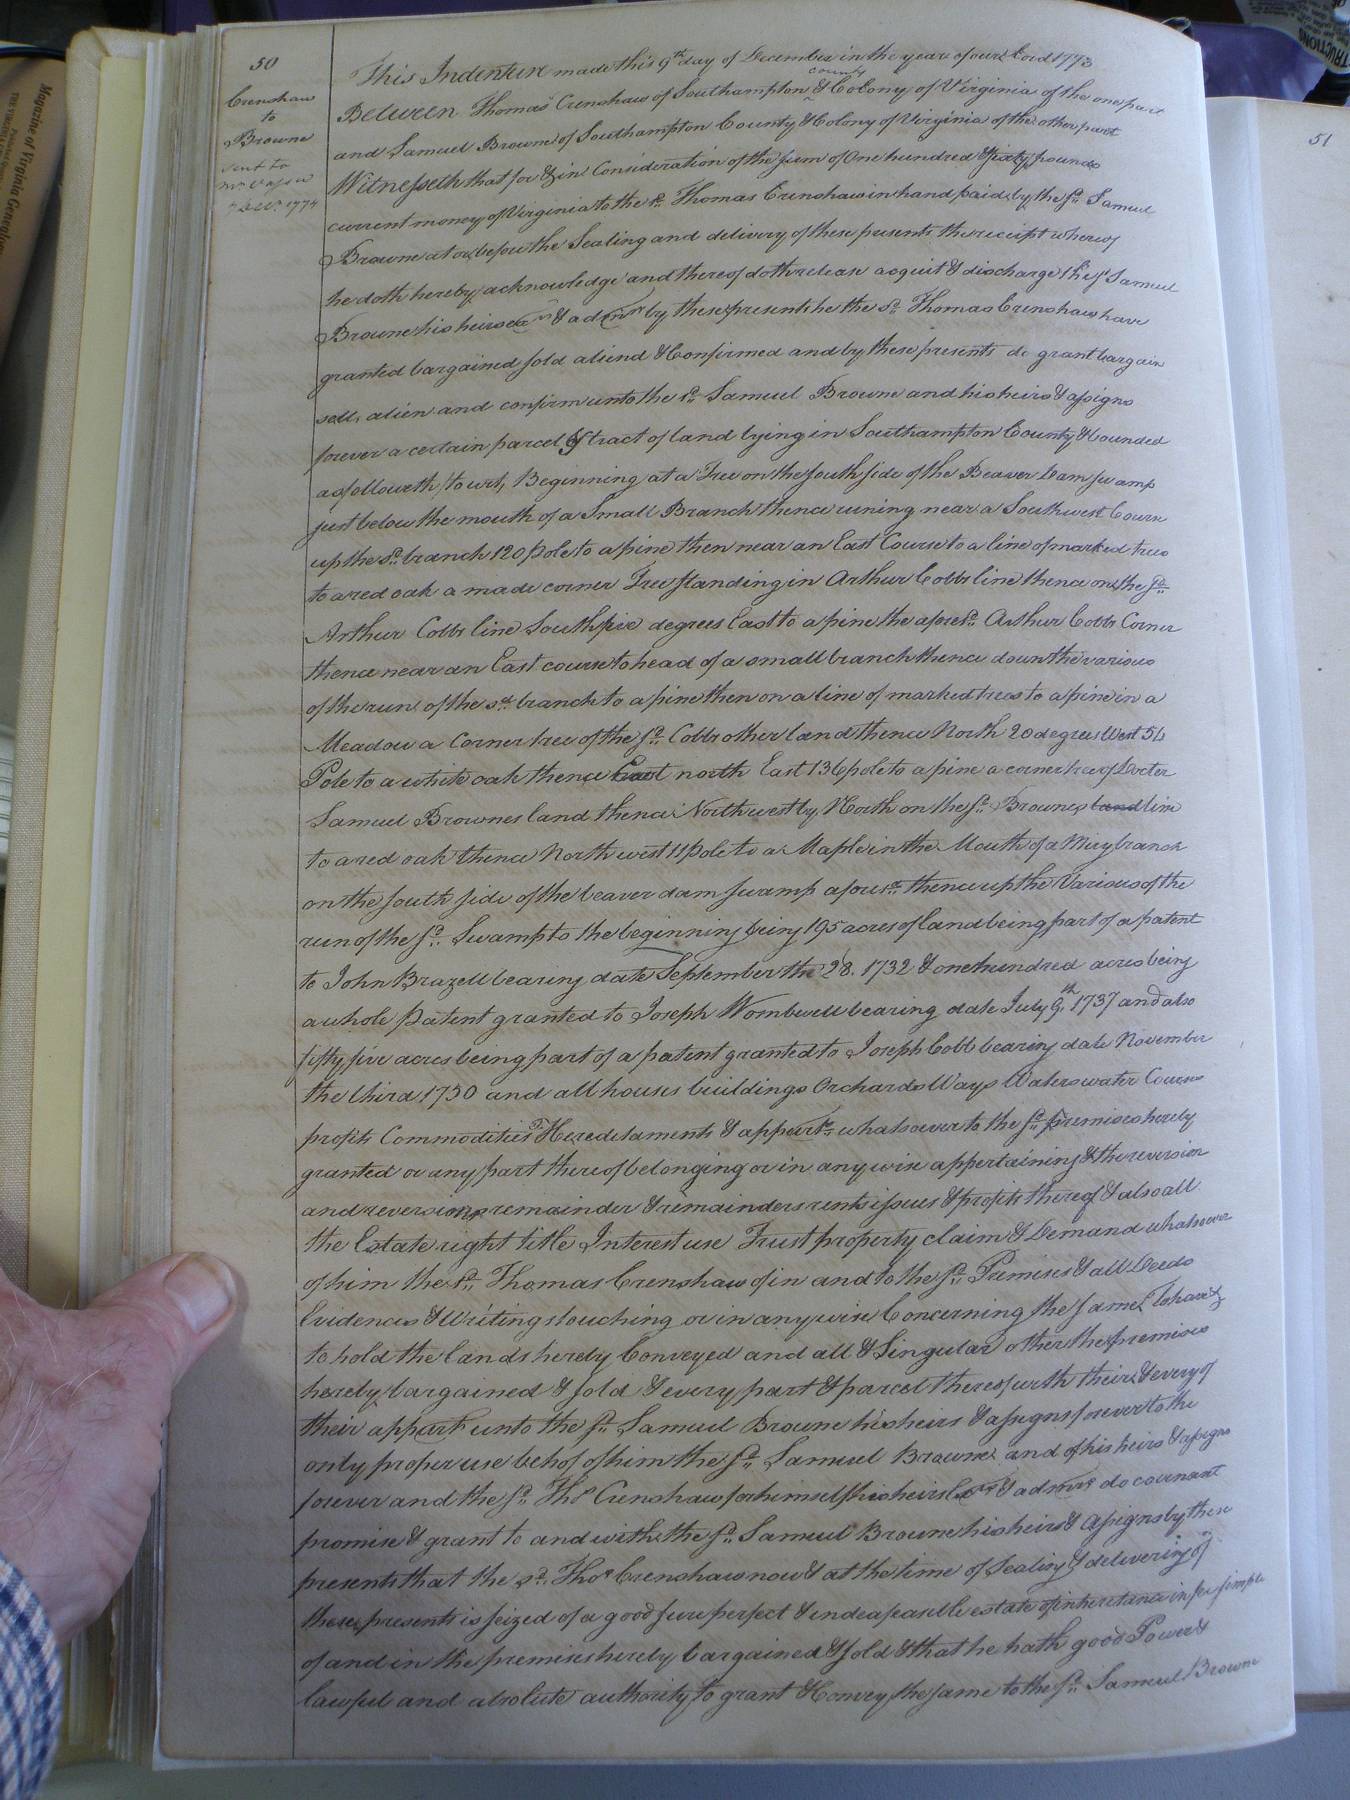 50
Crenshaw
to
Browne
sent to
7 Decr. 1774
This Indenture made this 9th day of December in the year of our Lord 1773
Between Thomas Crenshaw of Southampton county & Colony of Virginia of the one part
and Samuel Browne of Southampton County & Colony of Virginia of the other part
Witnesseth that for & in Consideration of the sum of One hundred & sixty pounds
current money of Virginia to the sd. Thomas Crenshaw in hand paid by the sd. Samuel
Browne at or before the Sealing and delivery of these presents the receipt whereof
he doth hereby acknowledge and thereof doth release acquit & discharge the sd Samuel
Browne his heirs exrs & admrs by these presents he the sd. Thomas Crenshaw have
granted bargained sold aliend & Confirmed and by these presents do grant bargain
sell, alien and confirm unto the sd. Samuel Browne and his heirs & assigns
forever a certain parcel or tract of land lying in Southampton County & bounded
as followeth, to wit, Beginning at a Tree on the south side of the Beaver Dam swamp
just below the mouth of a Small Branch thence runing near a Southwest Course
up the sd. branch 120 pole to a pine then near an East Course to a line of marked trees
to a red oak a made corner Tree standing in Arthur Cobbs line thence on the sd.
Arthur Cobbs line South five degrees East to a pine the aforesd. Arthur Cobbs Corner
thence near an East course to head of a small branch thence down the various
of the run of the sd. branch to a pine then on a line of marked trees to a pine in a
Meadow a Corner tree of the sd. Cobbs other land thence North 20 degrees West 54
Pole to a white oak thence East north East 136 pole to a pine a corner tree of Docter
Samuel Brownes land thence Northwest by North on the sd. Brownes land line
to a red oak thence North west 11 pole to a Maple in the Mouth of a Miry branch
on the south side of the beaver dam swamp aforesd. thence up the Various of the
run of the sd. Swamp to the beginning being 195 acres of land being part of a patent
to John Brazell bearing date September the 28. 1732 & one hundred acres being
a whole Patent granted to Joseph Wombwell bearing date July 9th. 1737 and also
fifty five acres being part of a patent granted to Joseph Cobb bearing date November
the third 1750 and all houses buildings Orchards Ways Waters water Courses
profits Commodities Heredetaments & appurts. whatsoever to the sd. premises hereby
granted or any part thereof belonging or in any wise appertaining & the reversion
and reversions remainder & remainders rents issues & profits thereof & also all
the Estate right title Interest use Trust property claim & Demand whatsoever
of him the sd. Thomas Crenshaw of in and to the sd. Premises & all Deeds
Evidences & Writings touching or in any wise Concerning the same, To have &
to hold the lands hereby Conveyed and all & Singular other the premises
hereby bargained & sold & every part & parcel thereof with their & every of
their appurts unto the sd. Samuel Browne his heirs & assigns forever to the
only proper use behof of him the sd. Samuel Browne and of his heirs & assigns
forever and the sd. Thos Crenshaw for himself his heirs Exrs & admrs do covenant
promise & grant to and with the sd. Samuel Browne his heirs & assigns by these
presents that the sd. Thos Crenshaw now & at the time of Sealing & delivering of
these presents is seized of a good sure perfect & indefeasible estate of inheritance in fee simple
of and in the premises hereby bargained & sold & that he hath good Power &
lawful and absolute authority to grant & Convey the same to the sd. Samuel Browne
51
Magazine of Virginia Genealogy